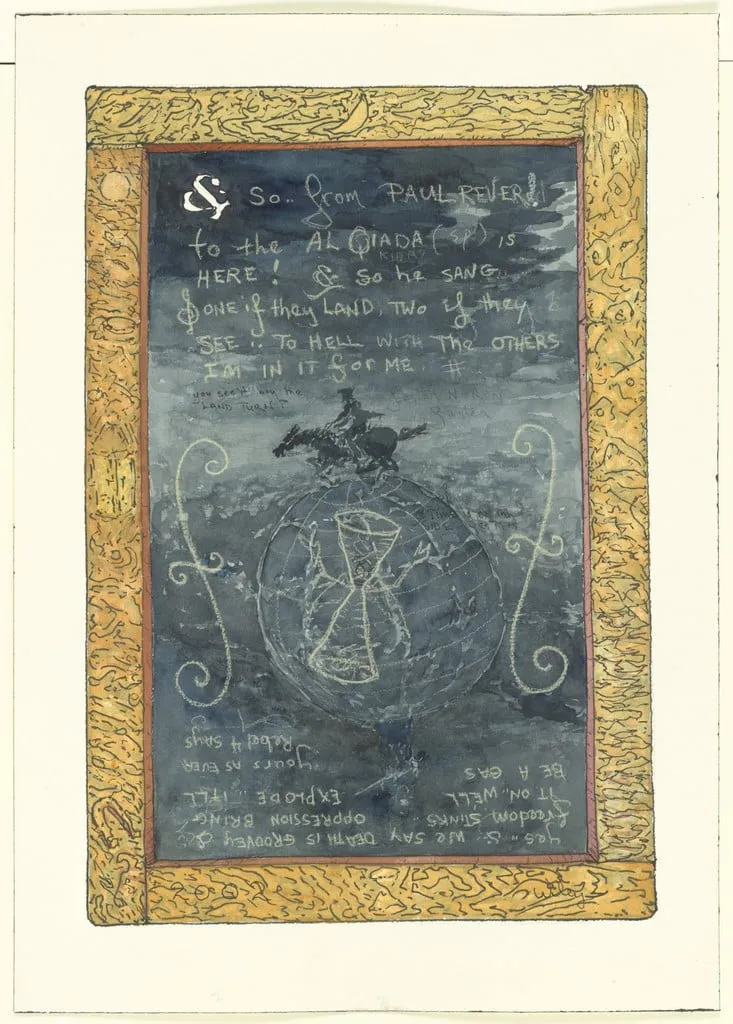 & So.. from PAUL REVER!!
to the AL QIADA (sp) is
HERE! & So he SANG
ONE if they LAND, TWO if they
SEE.. TO HELL WITH The OTHERS
IM IN IT for ME. #
you see it how the
LAND TURNT
Yes.. & We SAY DEATH IS GROOVEY &
freedom STINKS OPPRESSION BRING
IT ON.. WELL EXPLODE.. ITLL
BE A GAS yours AS EVER
Rebel 4 SAYS
Wiley